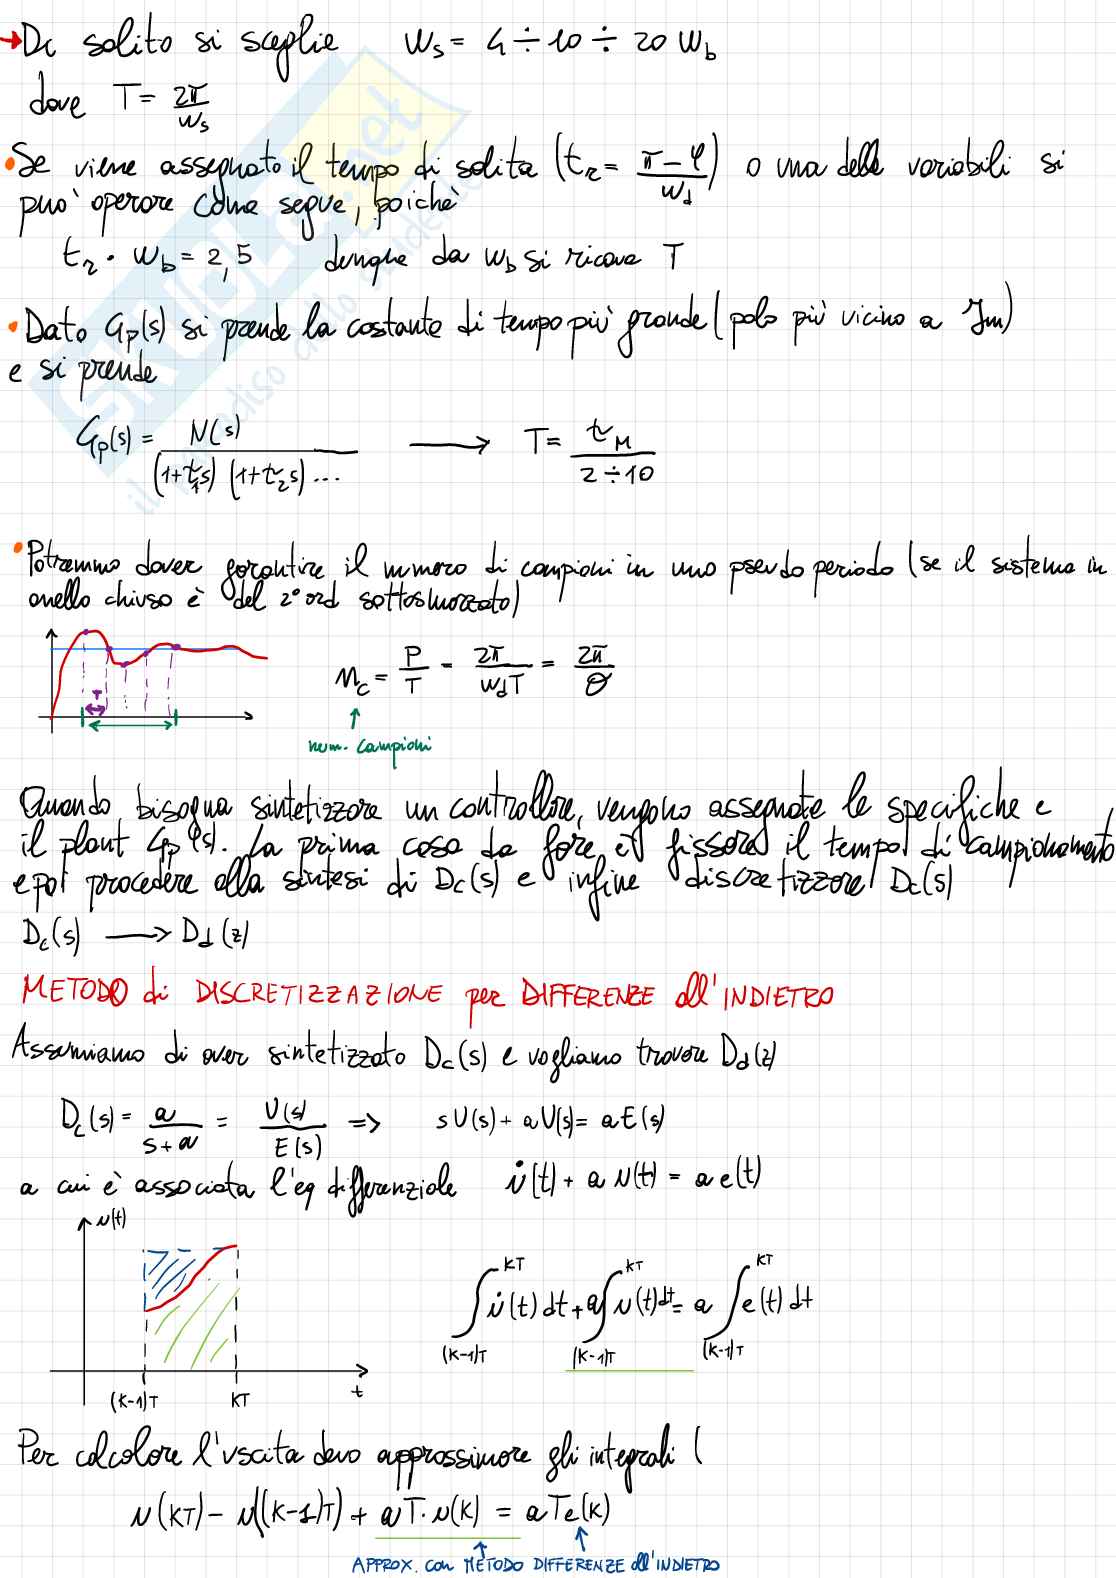 → Di solito si sceglie ωs = 4 ÷ 10 ÷ 20 ωb
dove T = 2π/ωs
• Se viene assegnato il tempo di salita (tr = π-φ/ωd) o una delle variabili si
può operare come segue, poichè
tr · ωb = 2,5 dunque da ωb si ricava T
• Dato Gp(s) si prende la costante di tempo più grande (polo più vicino a Im)
e si prende
Gp(s) = N(s)/(1+τ1s)(1+τ2s)... → T = τM/2÷10
• Potremmo dover garantire il numero di campioni in uno pseudo periodo (se il sistema in
anello chiuso è del 2° ord sottosmorzato)
T
nc = P/T = 2π/ωdT = 2π/θ
↑
num. campioni
Quando bisogna sintetizzare un controllore, vengono assegnate le specifiche e
il plant Gp(s). La prima cosa da fare è fissare il tempo di campionamento
e poi procedere alla sintesi di Dc(s) e infine discretizzare Dc(s)
Dc(s) → Dd(z)
METODO di DISCRETIZZAZIONE per DIFFERENZE all'INDIETRO
Assumiamo di aver sintetizzato Dc(s) e vogliamo trovare Dd(z)
Dc(s) = a/s+a = U(s)/E(s) => sU(s) + aU(s) = aE(s)
a cui è associata l'eq differenziale u̇(t) + a u(t) = a e(t)
u(t)
∫(k-1)T^kT u̇(t) dt + a∫(k-1)T^kT u(t)dt = a ∫(k-1)T^kT e(t) dt
(k-1)T kT t
Per calcolare l'uscita devo approssimare gli integrali (
u(kT) - u((k-1)T) + aT·u(k) = aTe(k)
APPROX. con METODO DIFFERENZE all'INDIETRO